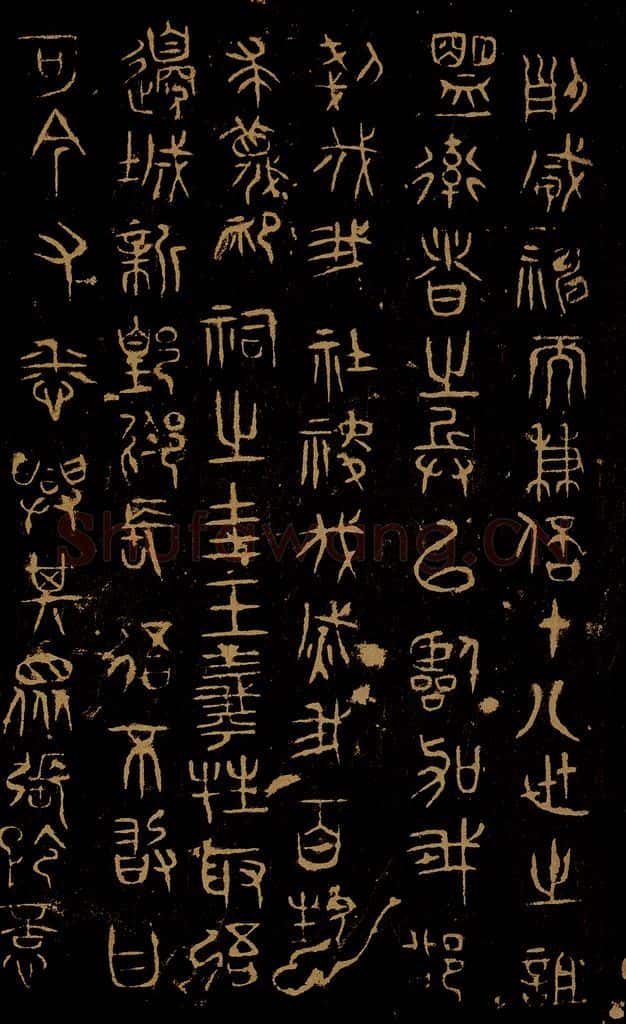 威神而兼倍十八世之詛
盟衛者之兵以臨加我欲
剗伐我社稷伐烕我百姓
求蔑祠之圭玉羲牲取吾
邊城新長吾不敢曰
可今又悉興其眾張矜意
Shufawang.CN